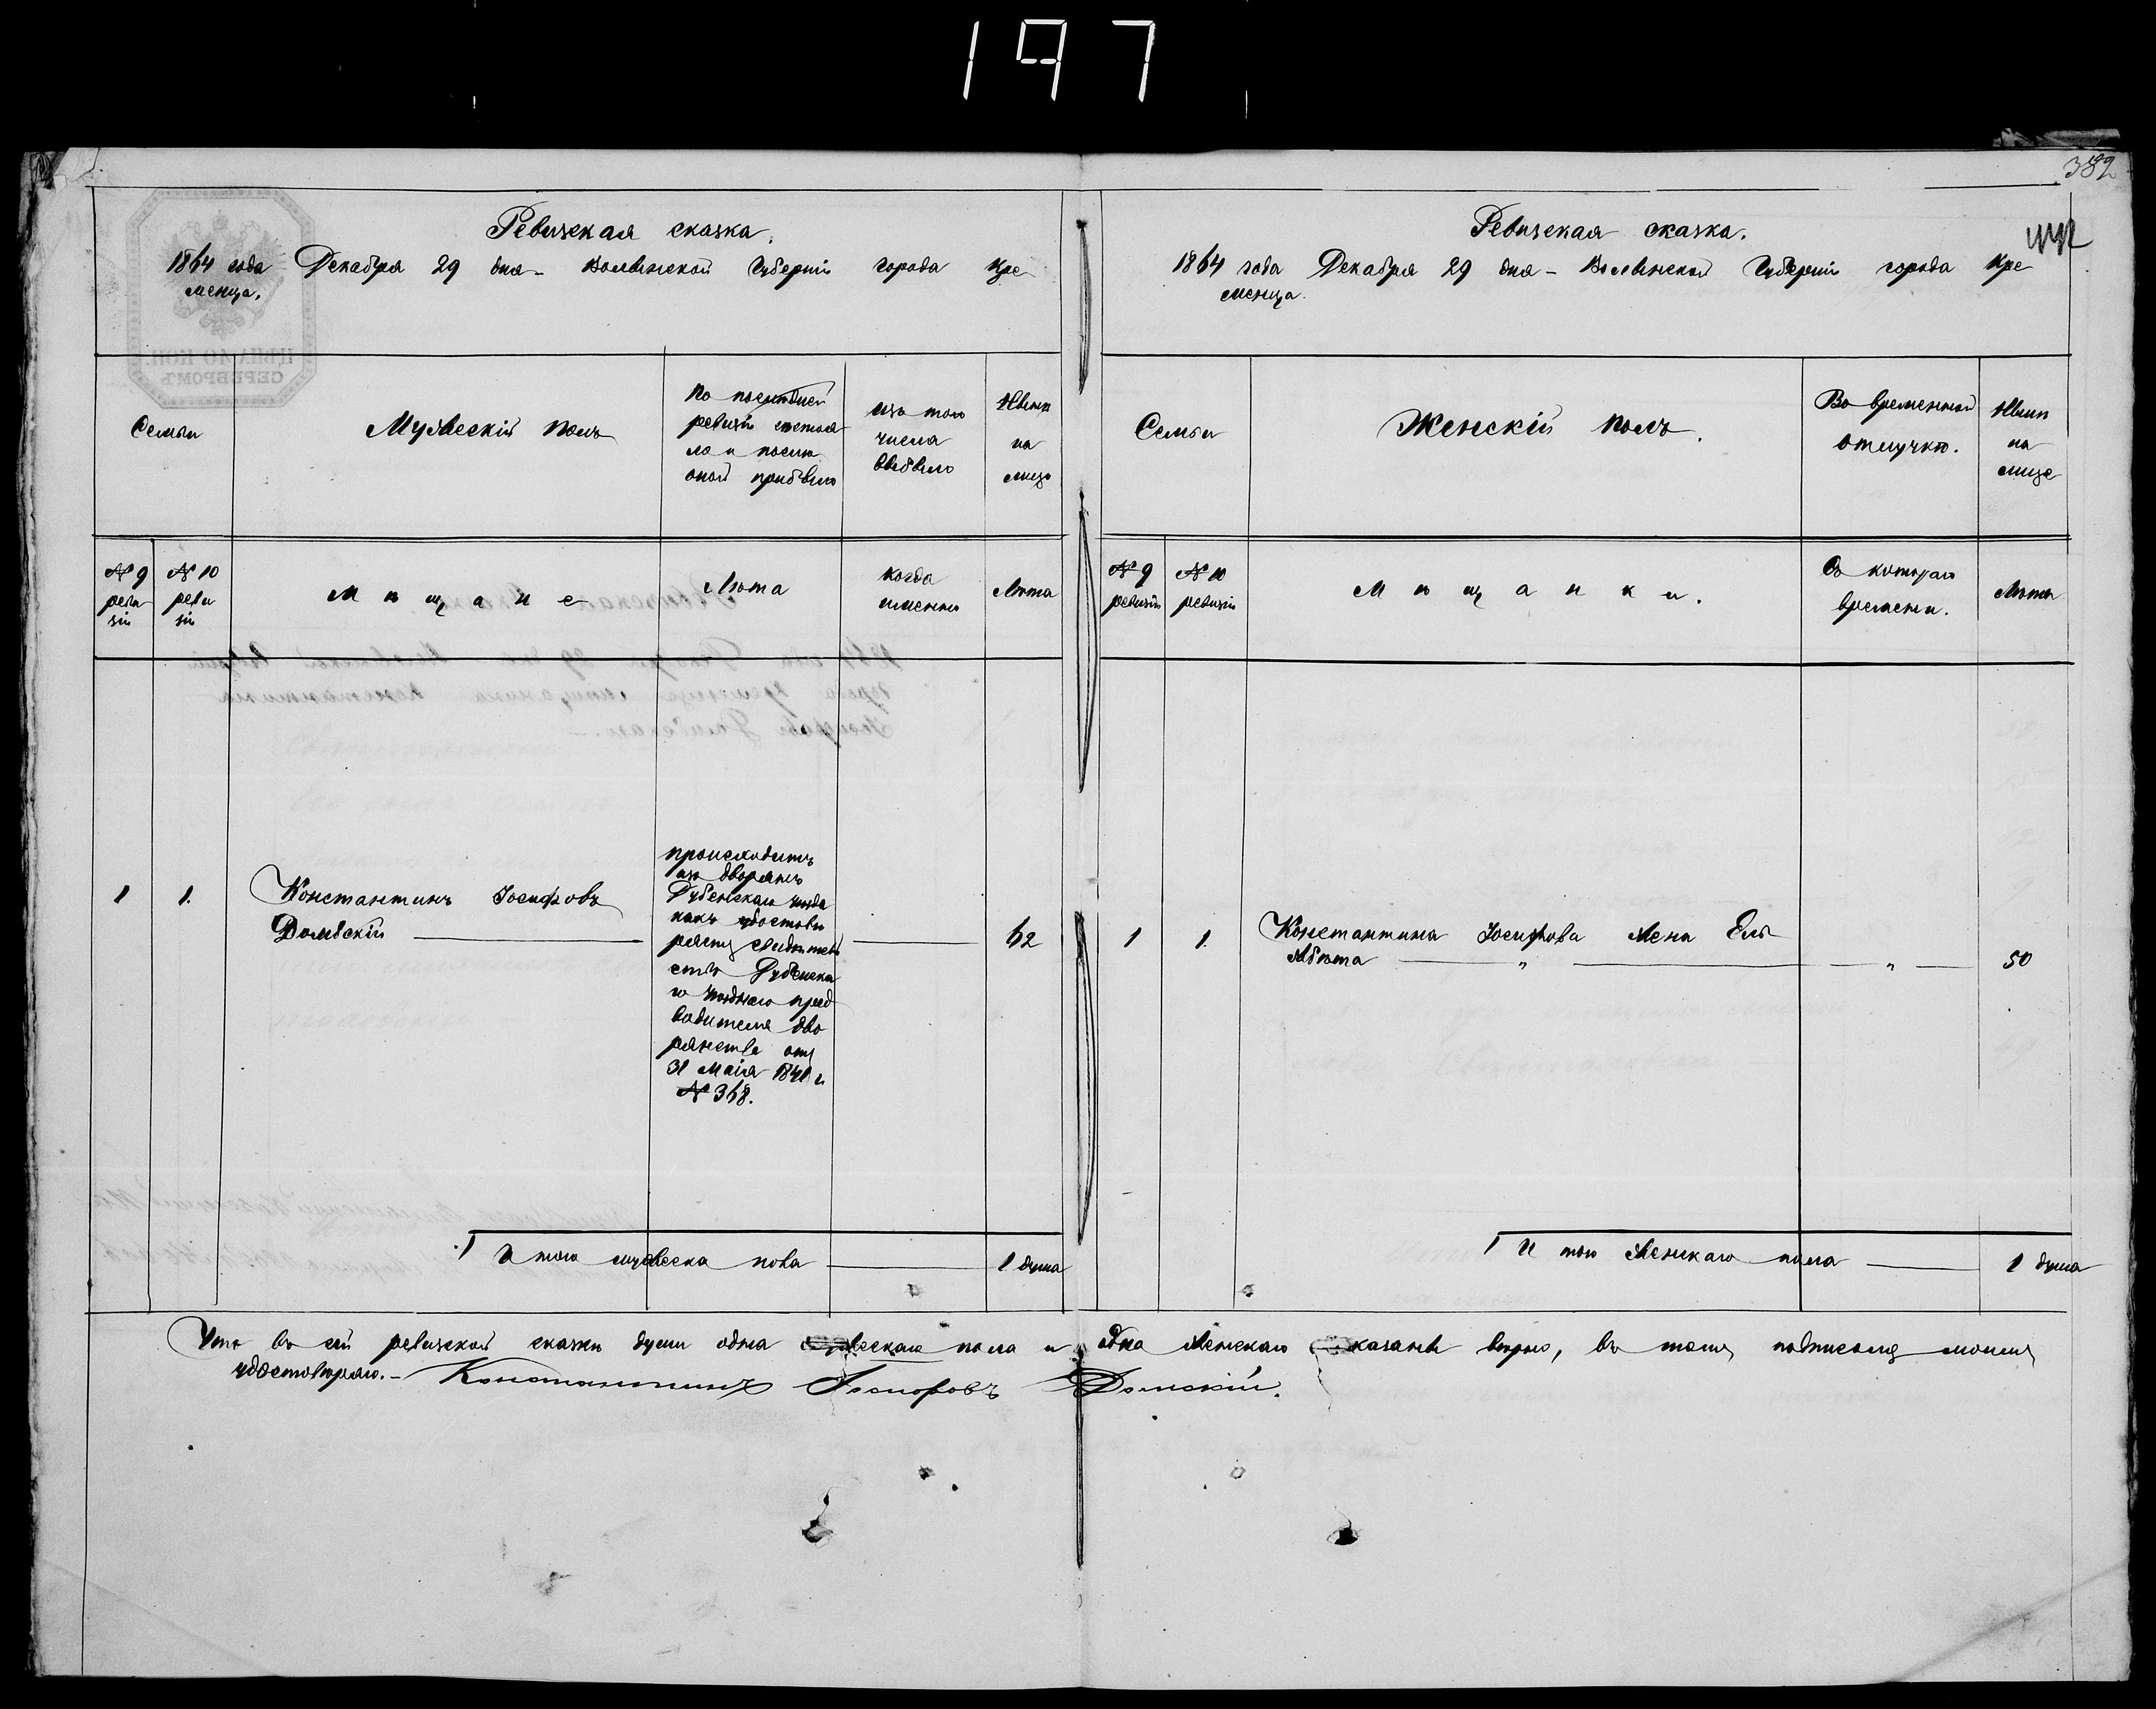 197
382
Ревизская сказка.
1864 года Декабря 29 дня – Волынской Губерніи города Кре
менца.
ЦѢНА 40 КОП.
СЕРЕБРОМЪ
Семьи
Мужескій полъ
По последней
ревизіи состоя
ло и после
оной прибыло
Изъ того
числа
выбыло
Нынѣ
на
лицо
№ 9
реви
зіи
№ 10
реви
зіи
Мѣщане
Лѣта
когда
именно
Лѣта
1 1. Константинъ Іосифовъ
Домбскій
происходитъ
изъ дворянъ
Дубенскаго уѣзда
какъ удостовѣ
ряетъ свидѣтель
ство Дубенска
го уѣзднаго пред
водителя дво
рянства отъ
31 Маія 1841 г.
№ 368.
62
1 И того мужеска пола 1 душа
Ревизская сказка.
1864 года Декабря 29 дня – Волынской Губерніи города Кре
менца.
Семьи
Женскій полъ.
Во временной
отлучкѣ.
Нынѣ
на
лице
№ 9
ревизіи
№ 10
ревизіи
Мѣщанки.
Съ котораго
времени.
Лѣта
1 1. Константина Іосифова жена Ель
жбѣта " " 50
1 И того женскаго пола 1 душа
Что въ сей ревизской сказкѣ души одна мужескаго пола и одна женскаго показаны вѣрно, въ томъ подписомъ моимъ
удостовѣряю. – Константинъ Іосифовъ Домскій.